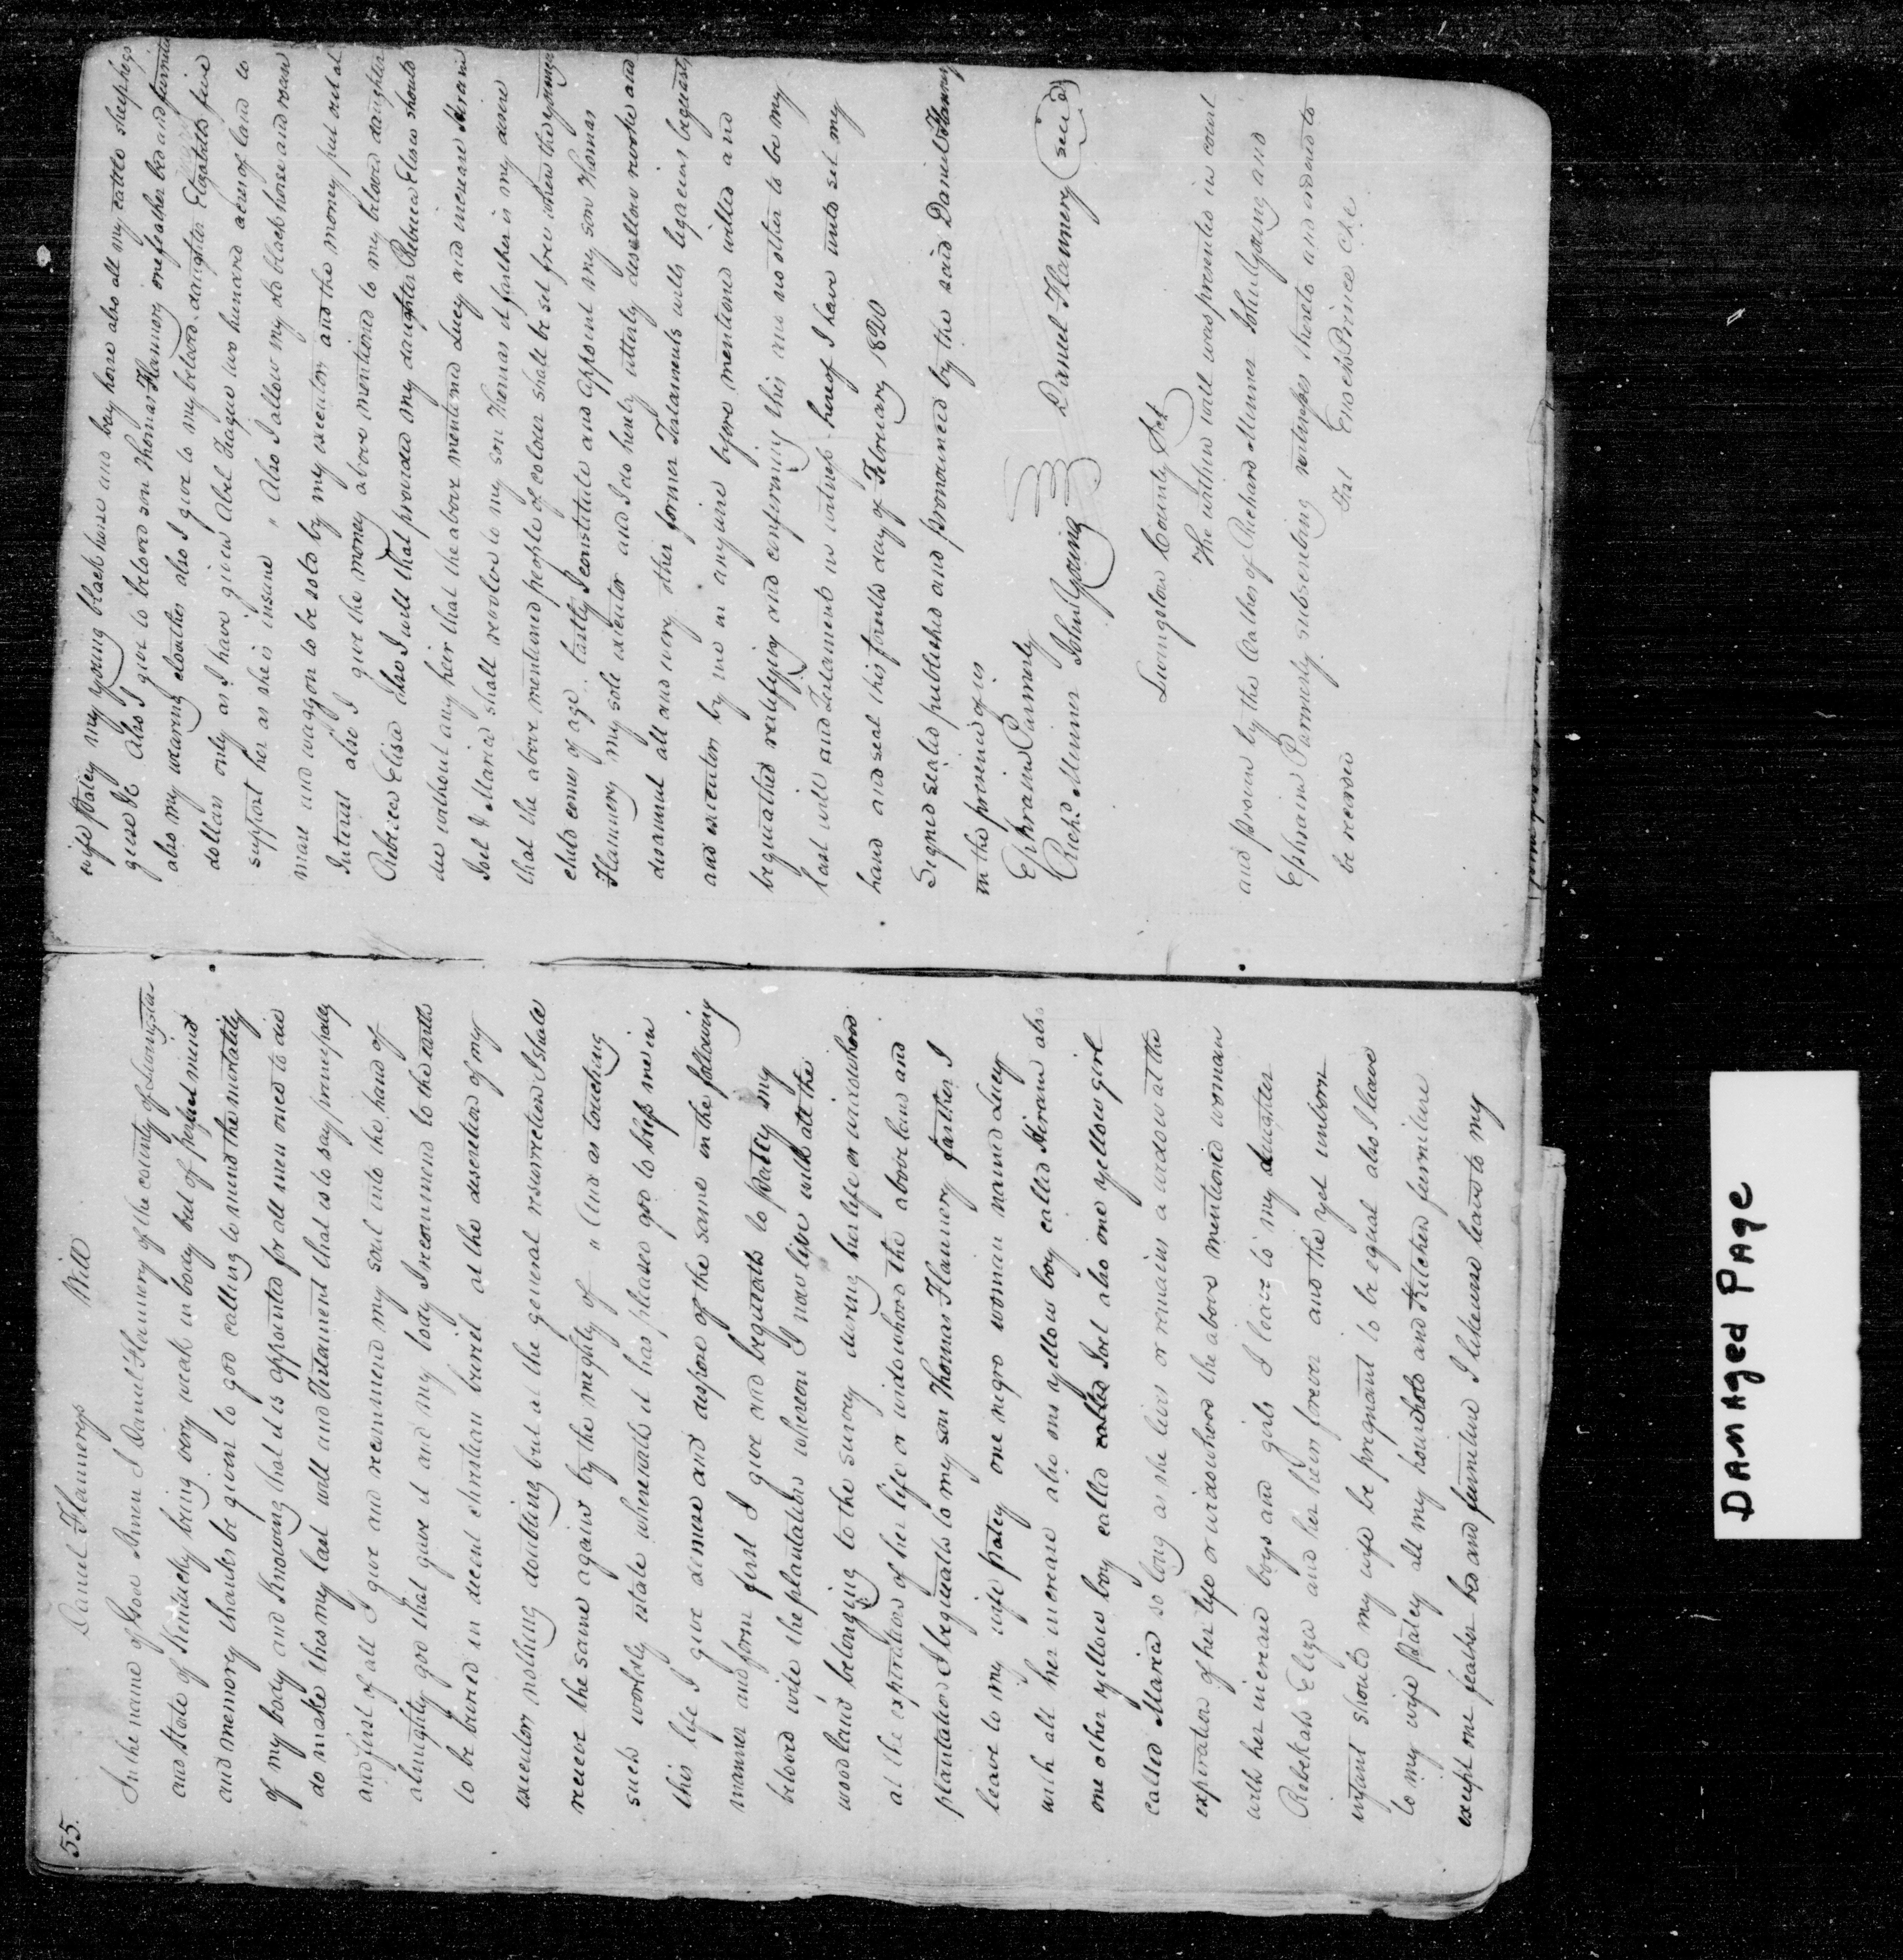 55.
Daniel Flannerys Will
In the name of God Amen I Daniel Flannery of the county of Livingston
and state of Kentucky being very weak in body but of perfect mind
and memory thanks be given to god calling to mind the mortality
of my body and Knowing that it is appointed for all men once to die
do make this my last will and Testament that is to say principally
and first of all I give and recommend my soul into the hand of
almighty god that gave it and my body I recommend to the earth
to be buried in decent christian buriel at the discretion of my
executors nothing doubting but at the general resurrection I shall
receive the same again by the mighty of " And as touching
such worldly estate wherewith it has pleased god to bless me in
this life I give demise and dispose of the same in the following
manner and form first I give and bequeath to Patcy my
beloved wife the plantation whereon I now live with all the
woodland belonging to the survey during her life or widowhood
at the expiration of her life or widowhood the above land and
plantation I bequeath to my son Thomas Flannery farther I
leave to my wife patcy one negro woman named Lucy
with all her increase also one yellow boy called Hiram also
one other yellow boy called called Joel also one yellow girl
called Maria so long as she lives or remains a widow at the
expiration of her life or widowhood the above mentioned woman
with her increase boys and girls I leave to my daughter
Rebekah Eliza and her heirs forever and the yet unborn
infant should my wife be pregnant to be equal also I leave
to my wife patcy all my household and Kitchen furniture
except one feather bed and furniture I likewise leave to my
wife Patcy my young black horse and bay horse also all my cattle sheep hogs
geese &c Also I give to beloved son Thomas Flannery one feather bed and furniture
also my wearing cloathes also I give to my beloved daughter Elizabeth five
dollars only as I have given Abel Teague two hundred acres of land to
support her as she is insane " Also I allow my old black horse and roan
mare and waggon to be sold by my executors and the money put out at
Interest also I give the money above mentioned to my beloved daughter
Rebecca Elisa also I will that provided my daughter Rebecca Elisa should
die without any heir that the above mentioned Lucy and increase Hiram
Joel & Maria shall revolve to my son Thomas it farther is my desire
that the above mentioned people of colour shall be set free when the youngest
child comes of age lastly I constitute and appoint my son Thomas
Flannery my sole executor and I do hereby utterly disallow revoke and
disannul all and every other former Testaments wills legacies bequests
and executors by me in anywise before mentioned willed and
bequeathed ratifying and confirming this and no other to be my
last will and Testament in witness hereof I have unto set my
hand and seal this fourth day of February 1820
Signed sealed published and pronounced by the said Daniel Flannery
in the presence of us
Ephraim Parmerly
Richd. Minner John Young Daniel Flannery seal
Livingston County Sct
The within will was presented in court
and proven by the oathes of Richard Minner John Young and
Ephraim Parmerly subscribing witnesses thereto and ordered to
be recorded Test Enoch Prince Clk
DAMAGED PAGE